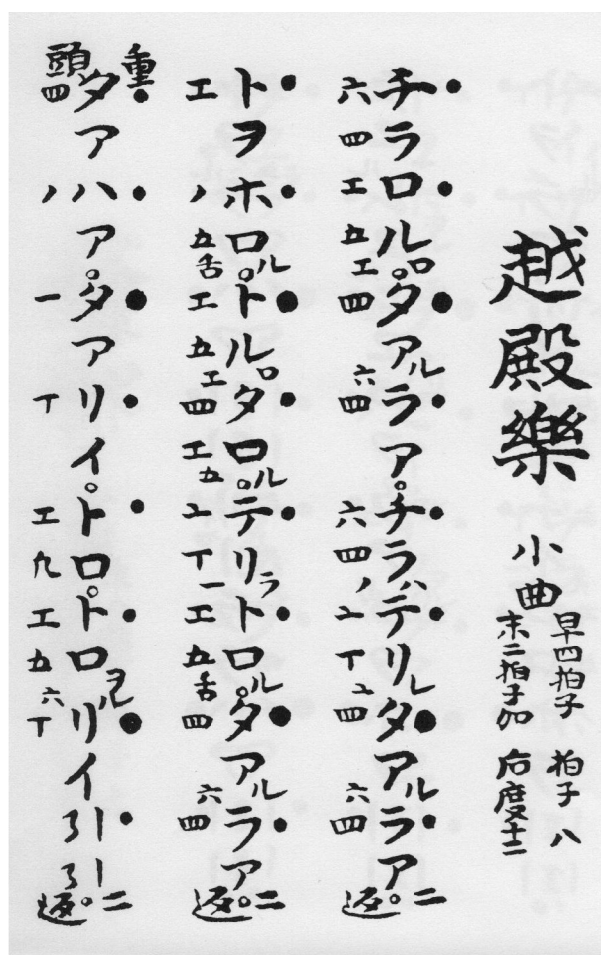 越殿樂 小曲
早四拍子 拍子八
末二拍子加 后度十二
チラロルロタアルラアチラハテリレタアルラア 二返
六四エ五エ四六四六四ノユ丁ユ四六四
トヲホロルトルロタロルテリラトロルタアルラア 二返
エノ五舌エ五エ四エ五ユ丁一エ五舌四六四
重頭
タアハアタアリイトロトロヲルリイ引引 二返
四ノ一丁エ九エ五六丁